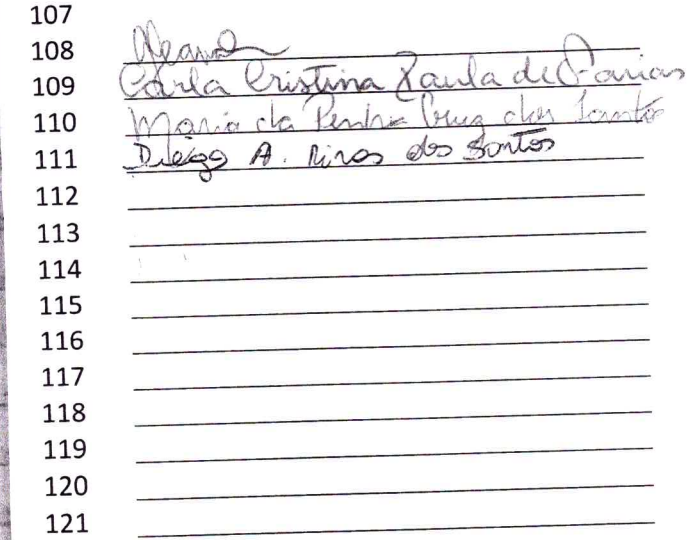 107
108
109 Carla Cristina Paula de Farias
110 Maria da Penha Cruz dos Santos
111 Diego A. Pires dos Santos
112
113
114
115
116
117
118
119
120
121